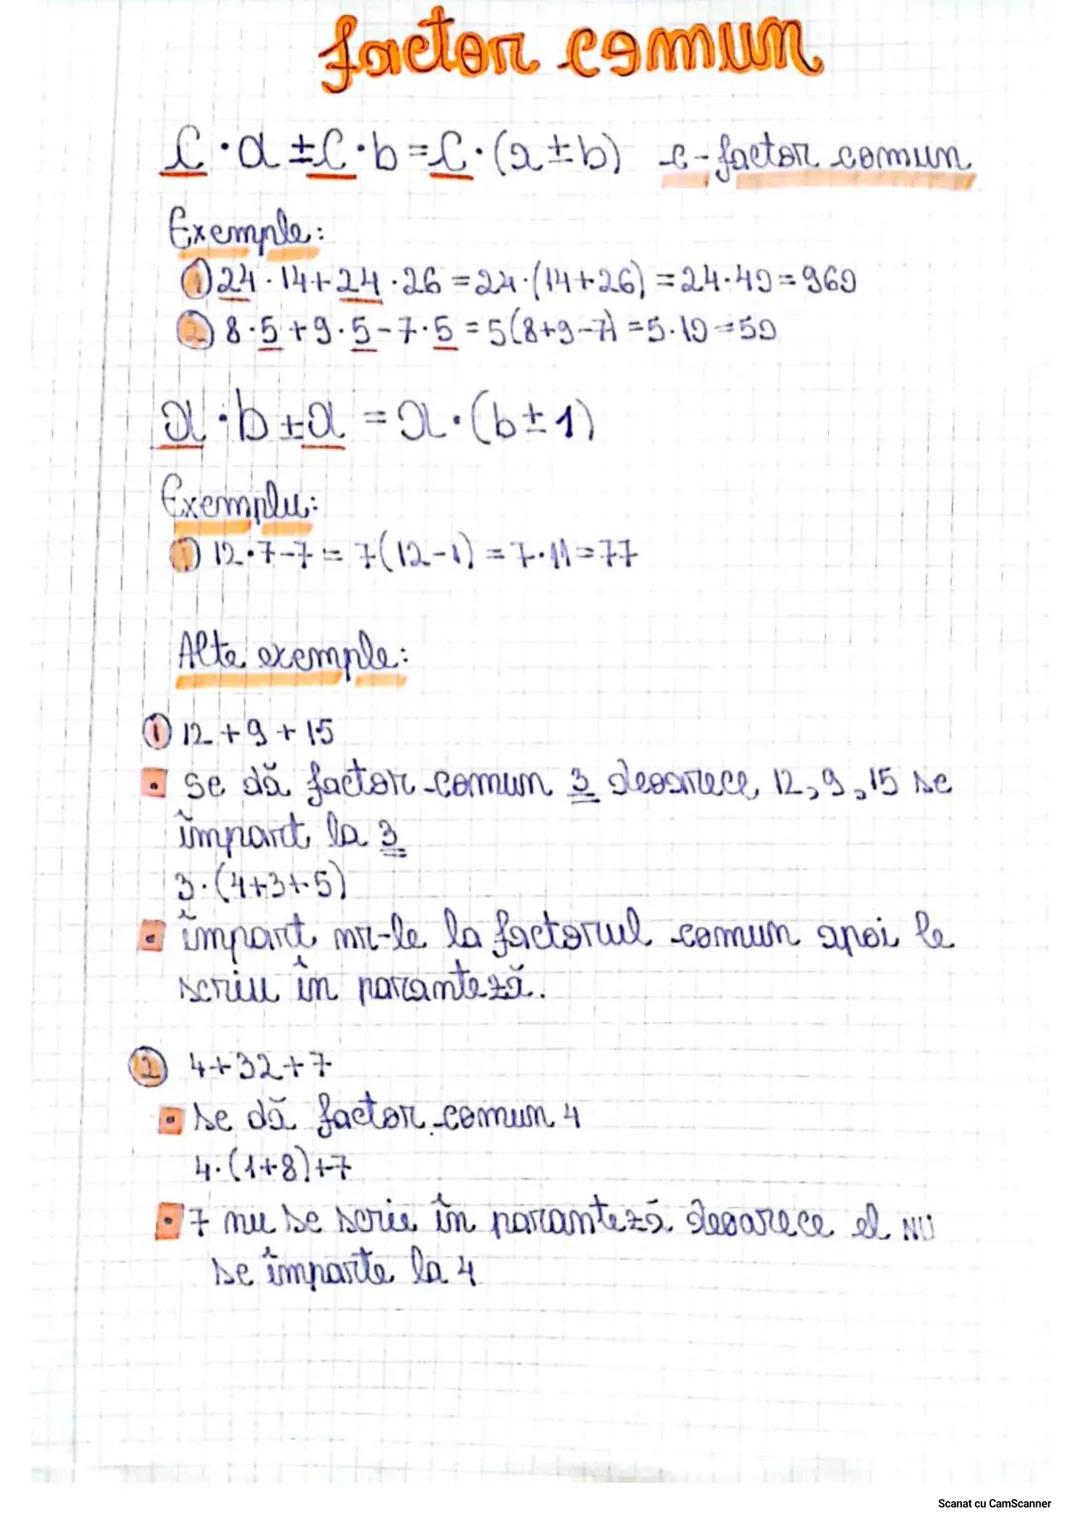 factor comun
c·a±c·b=c·(a±b) c-factor comun
Exemple:
① 24·14+24·26=24·(14+26)=24·40=960
② 8·5+9·5-7·5=5(8+9-7)=5·10=50
a·b±a=a·(b±1)
Exemplu:
① 12·7-7=7(12-1)=7·11=77
Alte exemple:
① 12+9+15
se dă factor comun 3 deoarece 12,9,15 se
împart la 3
3·(4+3+5)
împart nr-le la factorul comun apoi le
scriu în paranteză.
② 4+32+7
se dă factor comun 4
4·(1+8)+7
7 nu se scrie în paranteză deoarece el NU
se împarte la 4
Scanat cu CamScanner